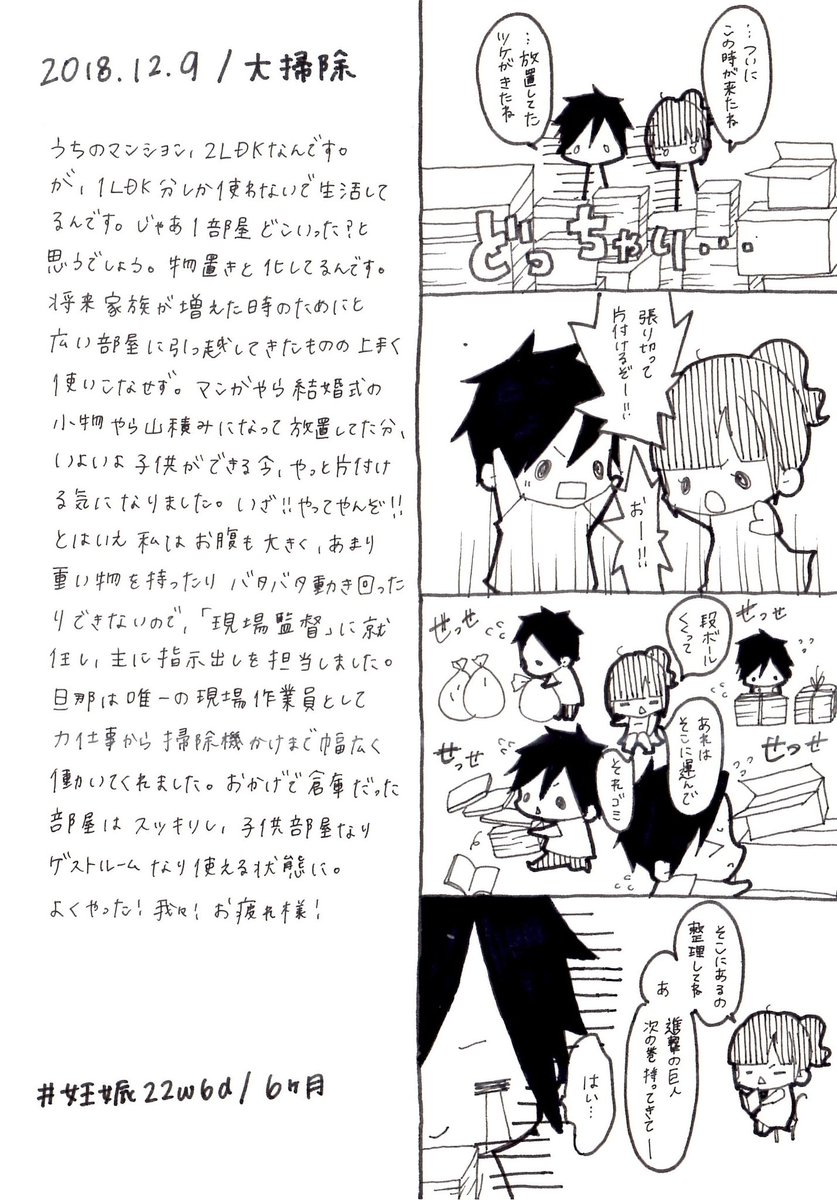 2018.12.9/大掃除
うちのマンション、2LDKなんです。
が、1LDK分しか使わないで生活して
るんです。じゃあ1部屋どこいった?と
思うでしょう。物置きと化してるんです。
将来家族が増えた時のためにと
広い部屋に引っ越してきたものの上手く
使いこなせず。マンガやら結婚式の
小物やら山積みになって放置してた分、
いよいよ子供ができる今、やっと片付け
る気になりました。いざ!!やってやんぞ!!
とはいえ私はお腹も大きく、あまり
重い物を持ったりバタバタ動き回った
りできないので、「現場監督」に就
任し、主に指示出しを担当しました。
旦那は唯一の現場作業員として
力仕事から掃除機かけまで幅広く
働いてくれました。おかげで倉庫だった
部屋はスッキリし、子供部屋なり
ゲストルームなり使える状態に。
よくやった!我々!お疲れ様!
#妊娠22w6d/6ヶ月
…ついに
この時が来たね
…放置してた
ツケがきたね
どっちゃり…
張り切って
片付けるぞー!!
おー!!
段ボール
くくって
せっせ
せっせ
あれは
そこに運んで
それゴミ
せっせ
せっせ
そこにあるの
整理してね
あ
進撃の巨人
次の巻持ってきてー
はい…